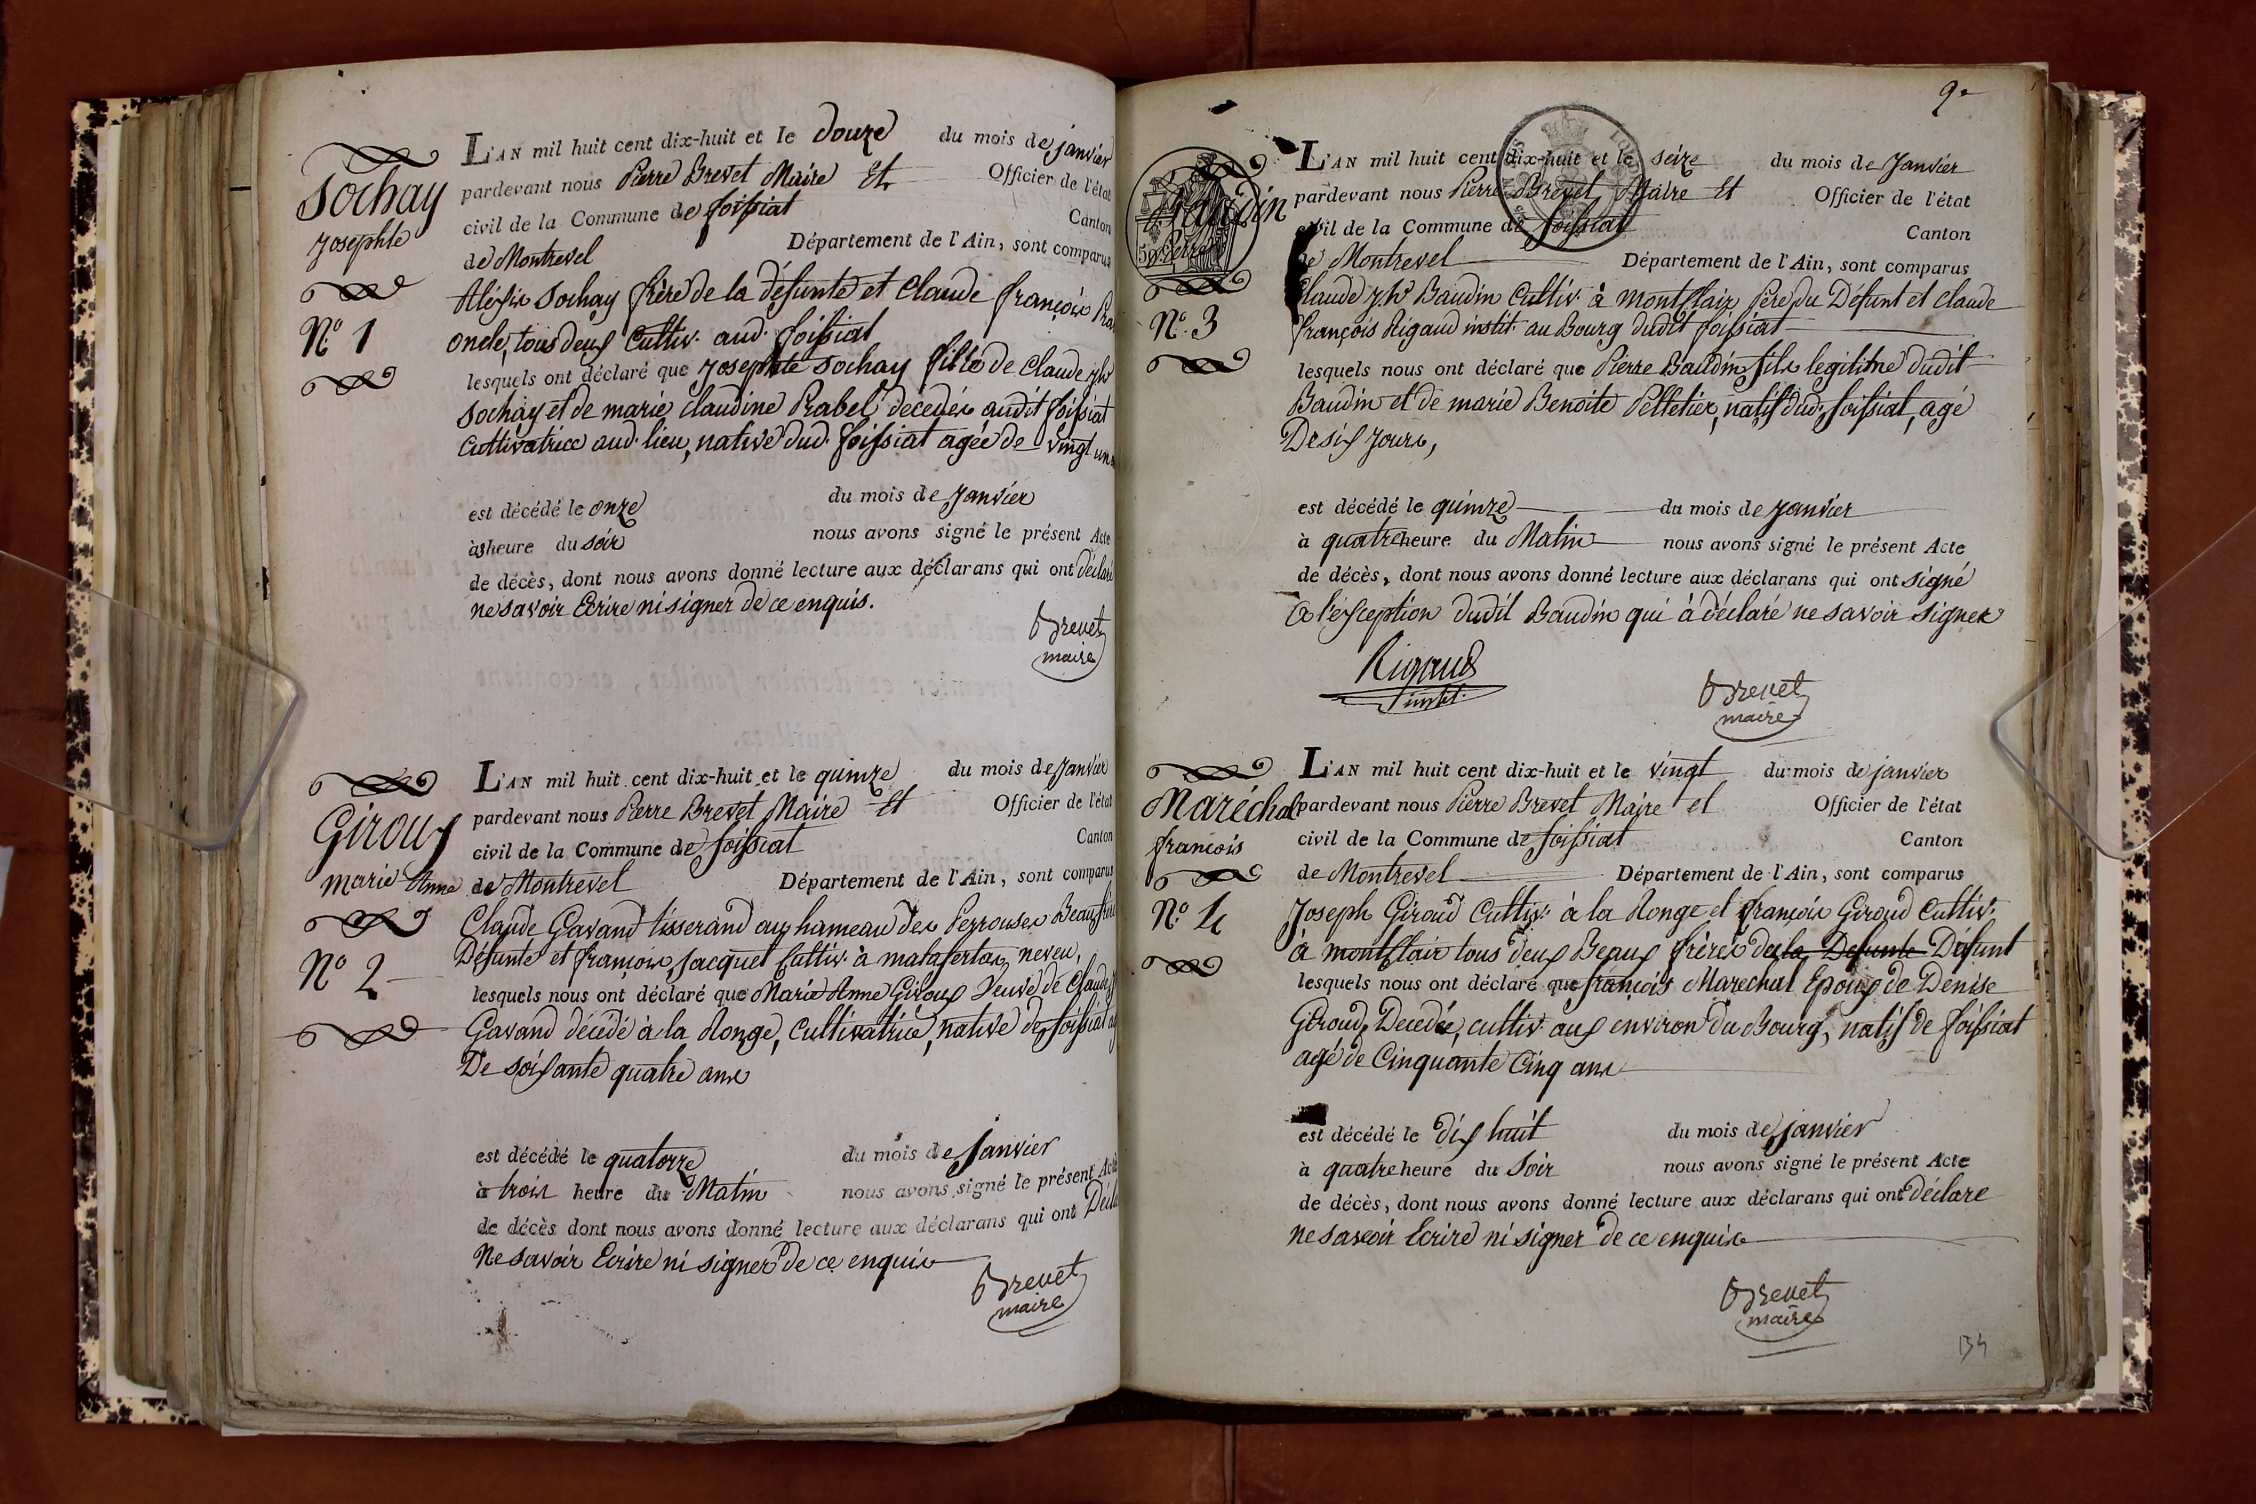 Sochay
Josephte
N.º 1
L'AN mil huit cent dix-huit et le douze du mois de janvier
pardevant nous Pierre Brevet Maire Et Officier de l'état
civil de la Commune de foissiat Canton
de Montrevel Département de l'Ain, sont comparus
Sochay frère de la défunte et Claude françois
oncle, tous deux Cultiv. aud. foissiat
lesquels ont déclaré que Josephte Sochay fille de Claude jh
Sochay et de marie Claudine Rabel décédés audit foissiat
Cultivatrice aud. lieu, native dud. foissiat agée de vingt un
est décédé le onze du mois de Janvier
à 3 heure du soir nous avons signé le présent Acte
de décès, dont nous avons donné lecture aux déclarans qui ont déclaré
ne savoir Ecrire ni signer de ce enquis.
Brevet
maire
Giroux
marie Anne
N.º 2
L'AN mil huit cent dix-huit et le quinze du mois de Janvier
pardevant nous Pierre Brevet Maire Et Officier de l'état
civil de la Commune de foissiat Canton
de Montrevel Département de l'Ain, sont comparus
Claude Gavand tisserand au hameau des Perrouses Beaufrère
Défunte et françois Jacquet Cultiv. à malafertas, neveu,
lesquels nous ont déclaré que Marie Anne Giroux Veuve de Claude
Gavand décédé à la Ronge, Cultivatrice, native de foissiat
De soixante quatre ans
est décédé le quatorze du mois de Janvier
à trois heure du Matin nous avons signé le présent Acte
de décès dont nous avons donné lecture aux déclarans qui ont Décla
Ne savoir Ecrire ni signer de ce enquis
Brevet
maire
9.
Baudin
Pierre
N.º 3
L'AN mil huit cent dix-huit et le seize du mois de Janvier
pardevant nous Pierre Brevet Maire Et Officier de l'état
civil de la Commune de foissiat Canton
de Montrevel Département de l'Ain, sont comparus
Claude jh. Baudin Cultiv. à montclair Père du Défunt et Claude
françois Rigaud instit. au Bourg dudit foissiat
lesquels nous ont déclaré que Pierre Baudin fils legitime dudit
Baudin et de marie Benoite Pelletier, natif dud. foissiat, agé
De six Jours,
est décédé le quinze du mois de Janvier
à quatre heure du Matin nous avons signé le présent Acte
de décès, dont nous avons donné lecture aux déclarans qui ont signé
à l'exception dudit Baudin qui à déclaré ne savoir signer
Rigaud
instit.
Brevet
maire
Maréchal
françois
N.º 4
L'AN mil huit cent dix-huit et le vingt du mois de janvier
pardevant nous Pierre Brevet Maire et Officier de l'état
civil de la Commune de foissiat Canton
de Montrevel Département de l'Ain, sont comparus
Joseph Giroud Cultiv. à la Ronge et françois Giroud Cultiv.
à montclair tous deux Beaux frères de la Defunte Défunt
lesquels nous ont déclaré que françois Marechal Epoux de Denise
Giroud, Decedée, cultiv. aux environ du Bourg, natif de foissiat
agé de Cinquante Cinq ans
est décédé le dix huit du mois de janvier
à quatre heure du Soir nous avons signé le présent Acte
de décès, dont nous avons donné lecture aux déclarans qui ont déclaré
ne savoir Ecrire ni signer de ce enquis
Brevet
maire
134